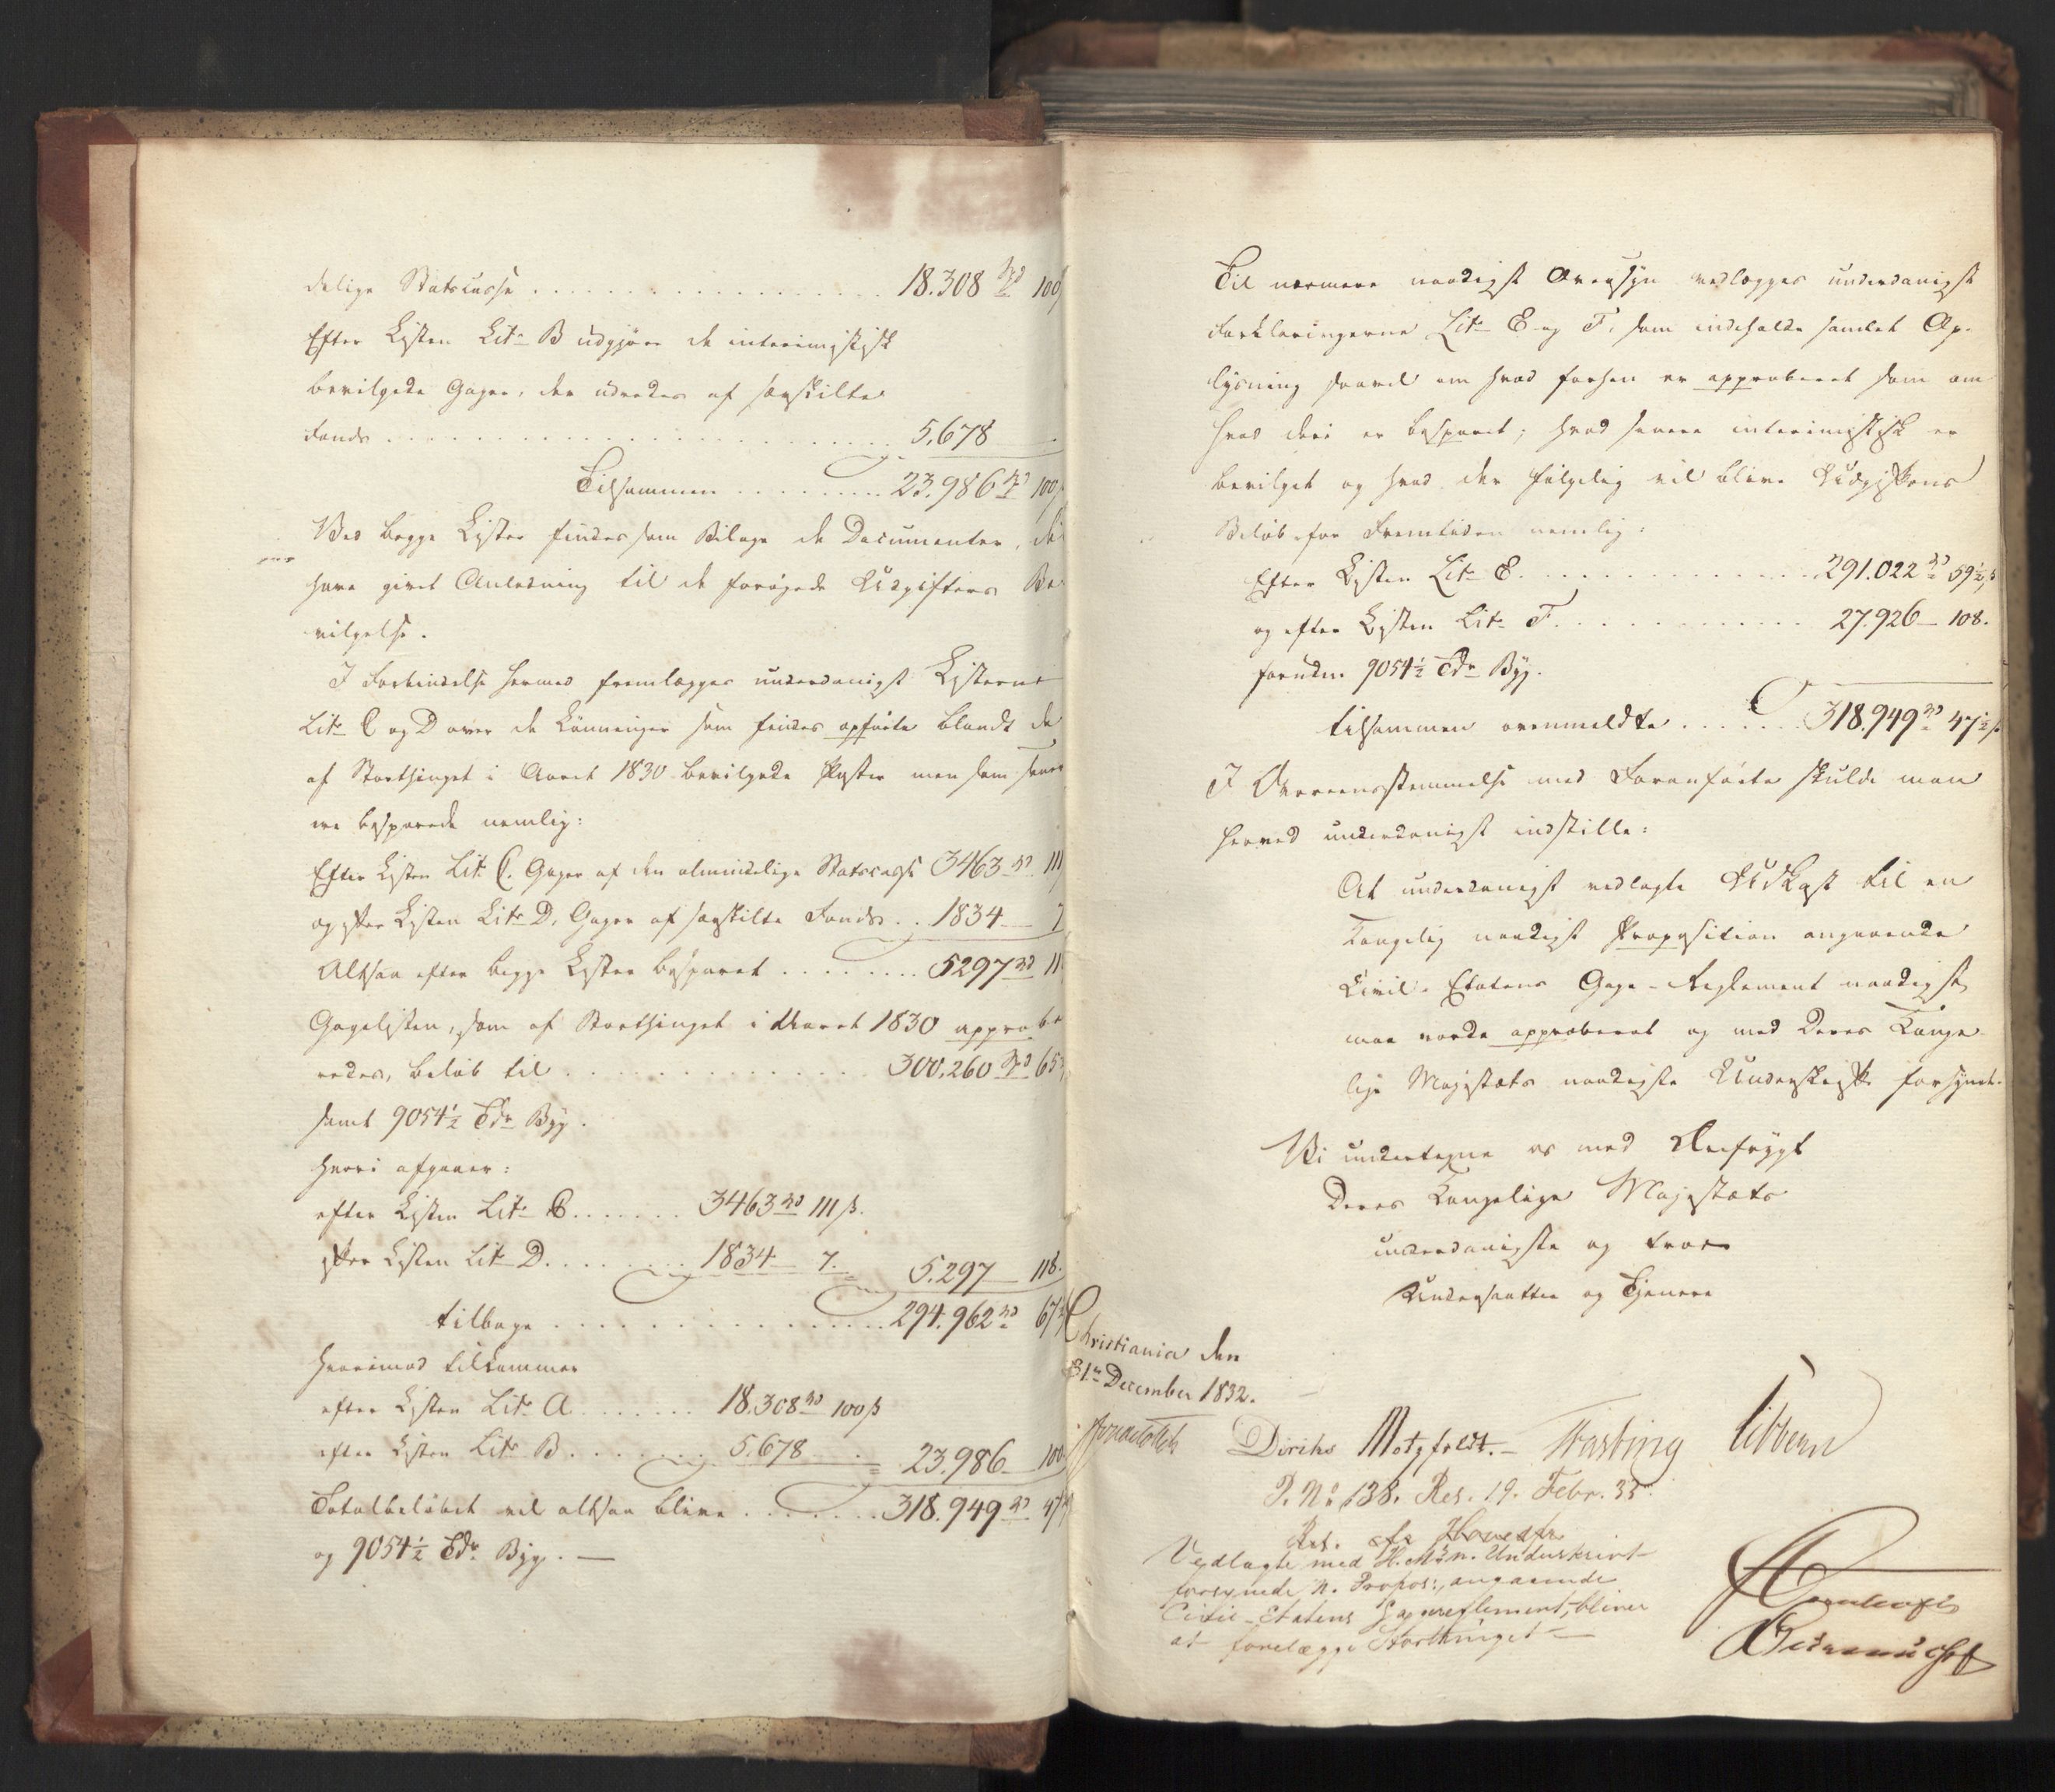 delige Statscasse . . . . . . . . . 18.308 Spd 100 ß
Efter Listen Litr. B udgjøre de interimistisk
bevilgede Gager, der udredes af særskilte
Fonds . . . . . . . . . 5.678 —
Tilsammen . . . . . . 23.986 Spd 100 ß
Ved begge Lister findes som Bilage de Documenter, der
have givet Anledning til de forøgede Udgifters Be-
vilgelse.
I Forbindelse hermed fremlægges underdanigst Listerne
Litr. C og D over de Lønninger som findes opførte blandt de
af Storthinget i Aaret 1830 bevilgede Poster men som senere
ere besparede nemlig:
Efter Listen Litr. C. Gager af den almindelige Statscasse 3463 Spd 111
og efter Listen Litr. D, Gager af særskilte Fonds . . 1834 — 7
Altsaa efter begge Lister besparet . . . . . . 5297 Spd 11
Gagelisten, som af Storthinget i Aaret 1830 approbe-
redes, beløb til . . . . . . . . . 300.260 Spd 65
samt 9054½ Tdr Byg.
Hvori afgaaer:
efter Listen Litr. C. . . . . . 3463 Spd 111 ß.
efter Listen Litr. D. . . . . . 1834 — 7. 5.297 — 118.
tilbage . . . . . . . . . 294.962 Spd 67
Hvorimod tilkommer
efter Listen Litr. A . . . . . . 18.308 Spd 100 ß
efter Listen Litr. B . . . . . . 5.678 — 23.986 — 100
Totalbeløbet vil altsaa blive . . . . . . 318.949 Spd 47
og 9054½ Tdr. Byg. —
Til nærmere naadigst Oversyn vedlægges underdanigst
Forklaringerne Litr. E og F, som indeholde samlet Op-
lysning saavel om hvad forhen er approberet som om
hvad deri er besparet; hvad senere interimistisk er
bevilget og hvad der følgelig vil blive Udgiftens
Beløb for Fremtiden nemlig:
Efter Listen Litr. E. . . . . . . . . 291.022 Spd 59½ ß
og efter Listen Litr. F. . . . . . . . 27.926 — 108.
foruden 9054½ Tdr Byg.
tilsammen ovenmeldte . . . . . . 318.949 Spd 47½ ß
I Overeensstemmelse med Foranførte skulde man
herved underdanigst indstille:
At underdanigst vedlagte Udkast til en
Kongelig naadigst Proposition angaaende
Civil-Etatens Gage-Reglement naadigst
maa vorde approberet og med Deres Konge-
lige Majestæts naadigste Underskrift forsynet.
Vi undertegne os med Ærefrygt
Deres Kongelige Majestæts
underdanigste og troe
Undersaatter og Tjenere
Christiania den
31te December 1832.
Diriks Motzfeldt. — Fasting Vibbern
P. No 138. Res. 19. Febr. 33.
Vedlagte med H. M: n. Underskrivt
forsynede n. Propos:, angaaende
Civil-Etatens Gagereglement, bliver
at forelægge Storthinget —